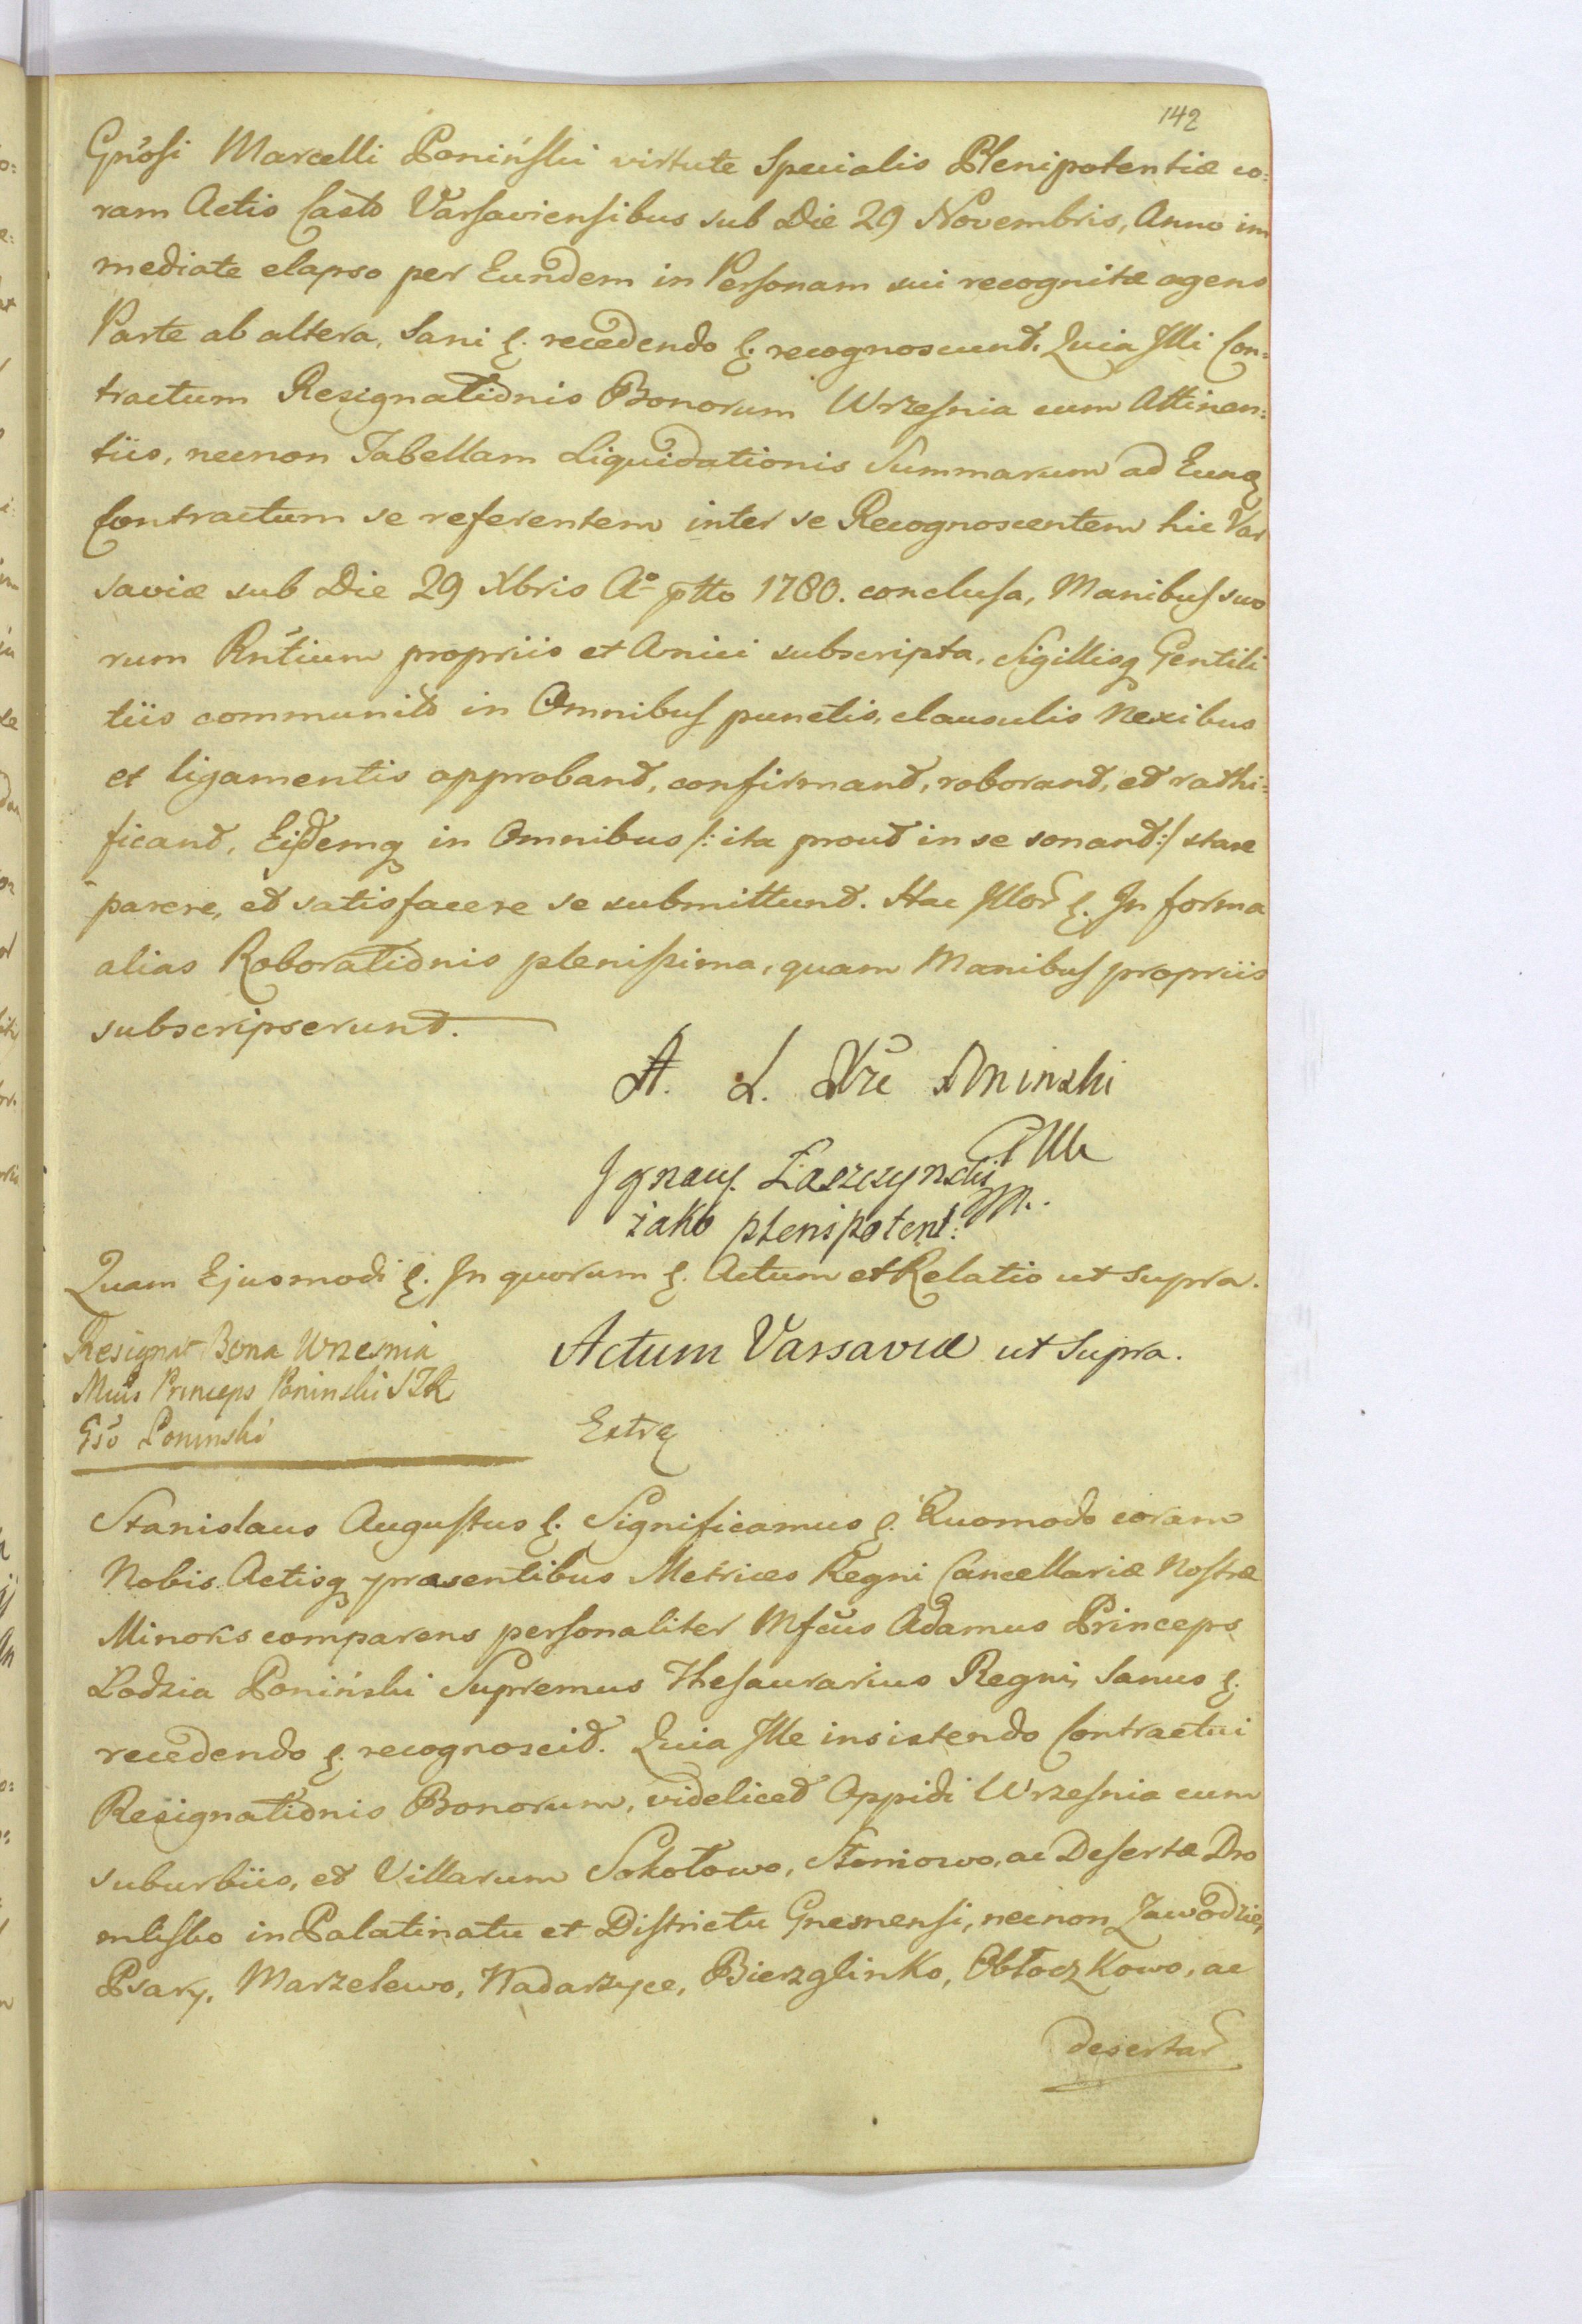 142
Gnosi Marcelli Poniński virtute Specialis Plenipotentiæ co=
ram Actis Castr Varsaviensibus sub Die 29 Novembris, Anno im
mediate elapso per Eundem in Personam sui recognitæ agens
Parte ab altera, Sani &. recedendo &. recognoscunt. Quia Illi Con=
tractum Resignationis Bonorum Wrzesnia cum Attinen=
tiis, necnon Tabellam Liquidationis Summarum ad Eunq
Contractum se referentem inter se Recognoscentem hic Var
saviæ sub Die 29 Xbris Aº ptto 1780. conclusa, Manibus suo
rum Rntium propriis et Amici subscripta, Sigillisq Gentili
tiis communit in Omnibus punctis, clausulis Nexibus
et ligamentis approbant, confirmant, roborant, et rathi=
ficant, Eisdemq in Omnibus /: ita prout in se sonant :/ stare
parere, et satisfacere se submittunt. Hac Illor &. In forma
alias Roborationis plenissima, quam Manibus propriis
subscripserunt.
A. L. Poninski
Ignacy Łaszczynski
iako plenipotent: m.
Quam Ejusmodi &. In quorum &. Actum et Relatio ut supra.
Resignat Bona Wrzesnia
Mcus Princeps Poninski
Gso Poninski
Actum Varsaviæ ut Supra.
Extrq
Stanislaus Augustus &. Significamus &. Quomodo coram
Nobis Actisq præsentibus Metrices Regni Cancellariæ Nostræ
Minoris comparens personaliter Mfcus Adamus Princeps
Lodzia Poniński Supremus Thesaurarius Regni, Sanus &.
recedendo &. recognoscit. Quia Ille insistendo Contractui
Resignationis Bonorum, videlicet Oppidi Wrzesnia cum
suburbiis, et Villarum Sokołowo, Słomowo, ac Desertæ Dro
in Palatinatu et Districtu Gnesnensi, necnon Zawodzie,
Psary, Marzelewo, Nadarzyce, Bierzglinko, Obłoczkowo, ac
desertar